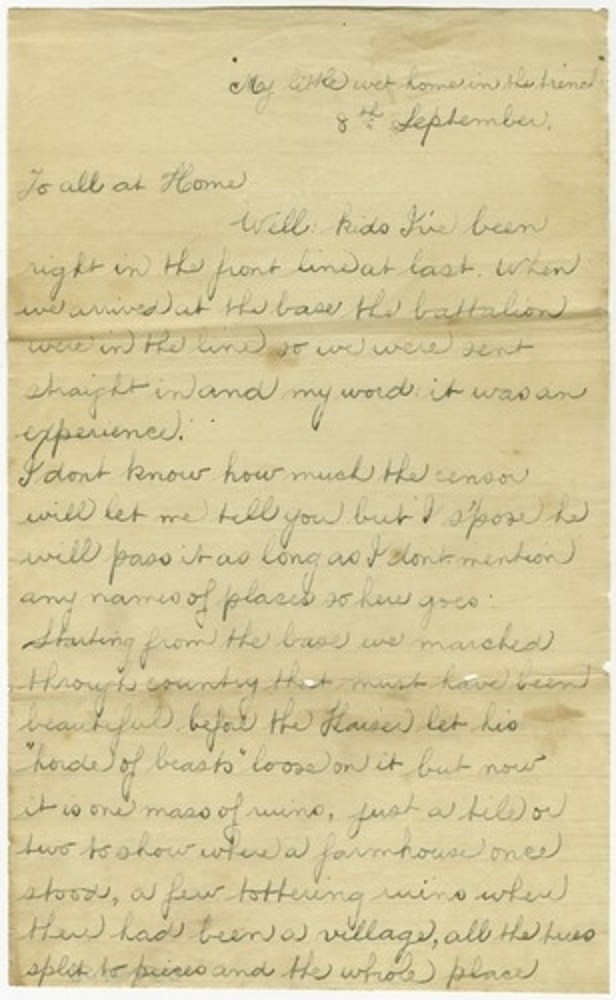 My little wet home in the trench
8th September.
To all at Home
Well kids I've been
right in the front line at last. When
we arrived at the base the battalion
were in the line so we were sent
straight in and my word it was an
experience.
I dont know how much the censor
will let me tell you but I s'pose he
will pass it as long as I dont mention
any names of places so here goes:
Starting from the base we marched
through country that must have been
beautiful before the Kaiser let his
"horde of beasts" loose on it but now
it is one mass of ruins, just a tile or
two to show where a farmhouse once
stood, a few tottering ruins where
there had been a village, all the trees
split to pieces and the whole place